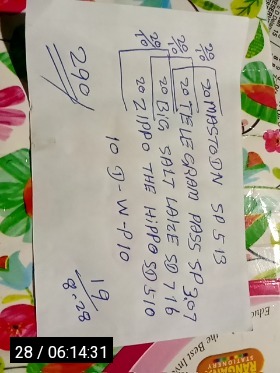 20 MASTODN SD 5 13
20 TELEGRAM PASS SP 3.07
20 BIG SALT LAIZE SD 7 16
20 ZIPPO THE HIPPO SD 5 10
10 D-W-P10
20/10
20/10
20/10
290
19/8.28
28 / 06:14:31
the Best Inv
STATIONERY